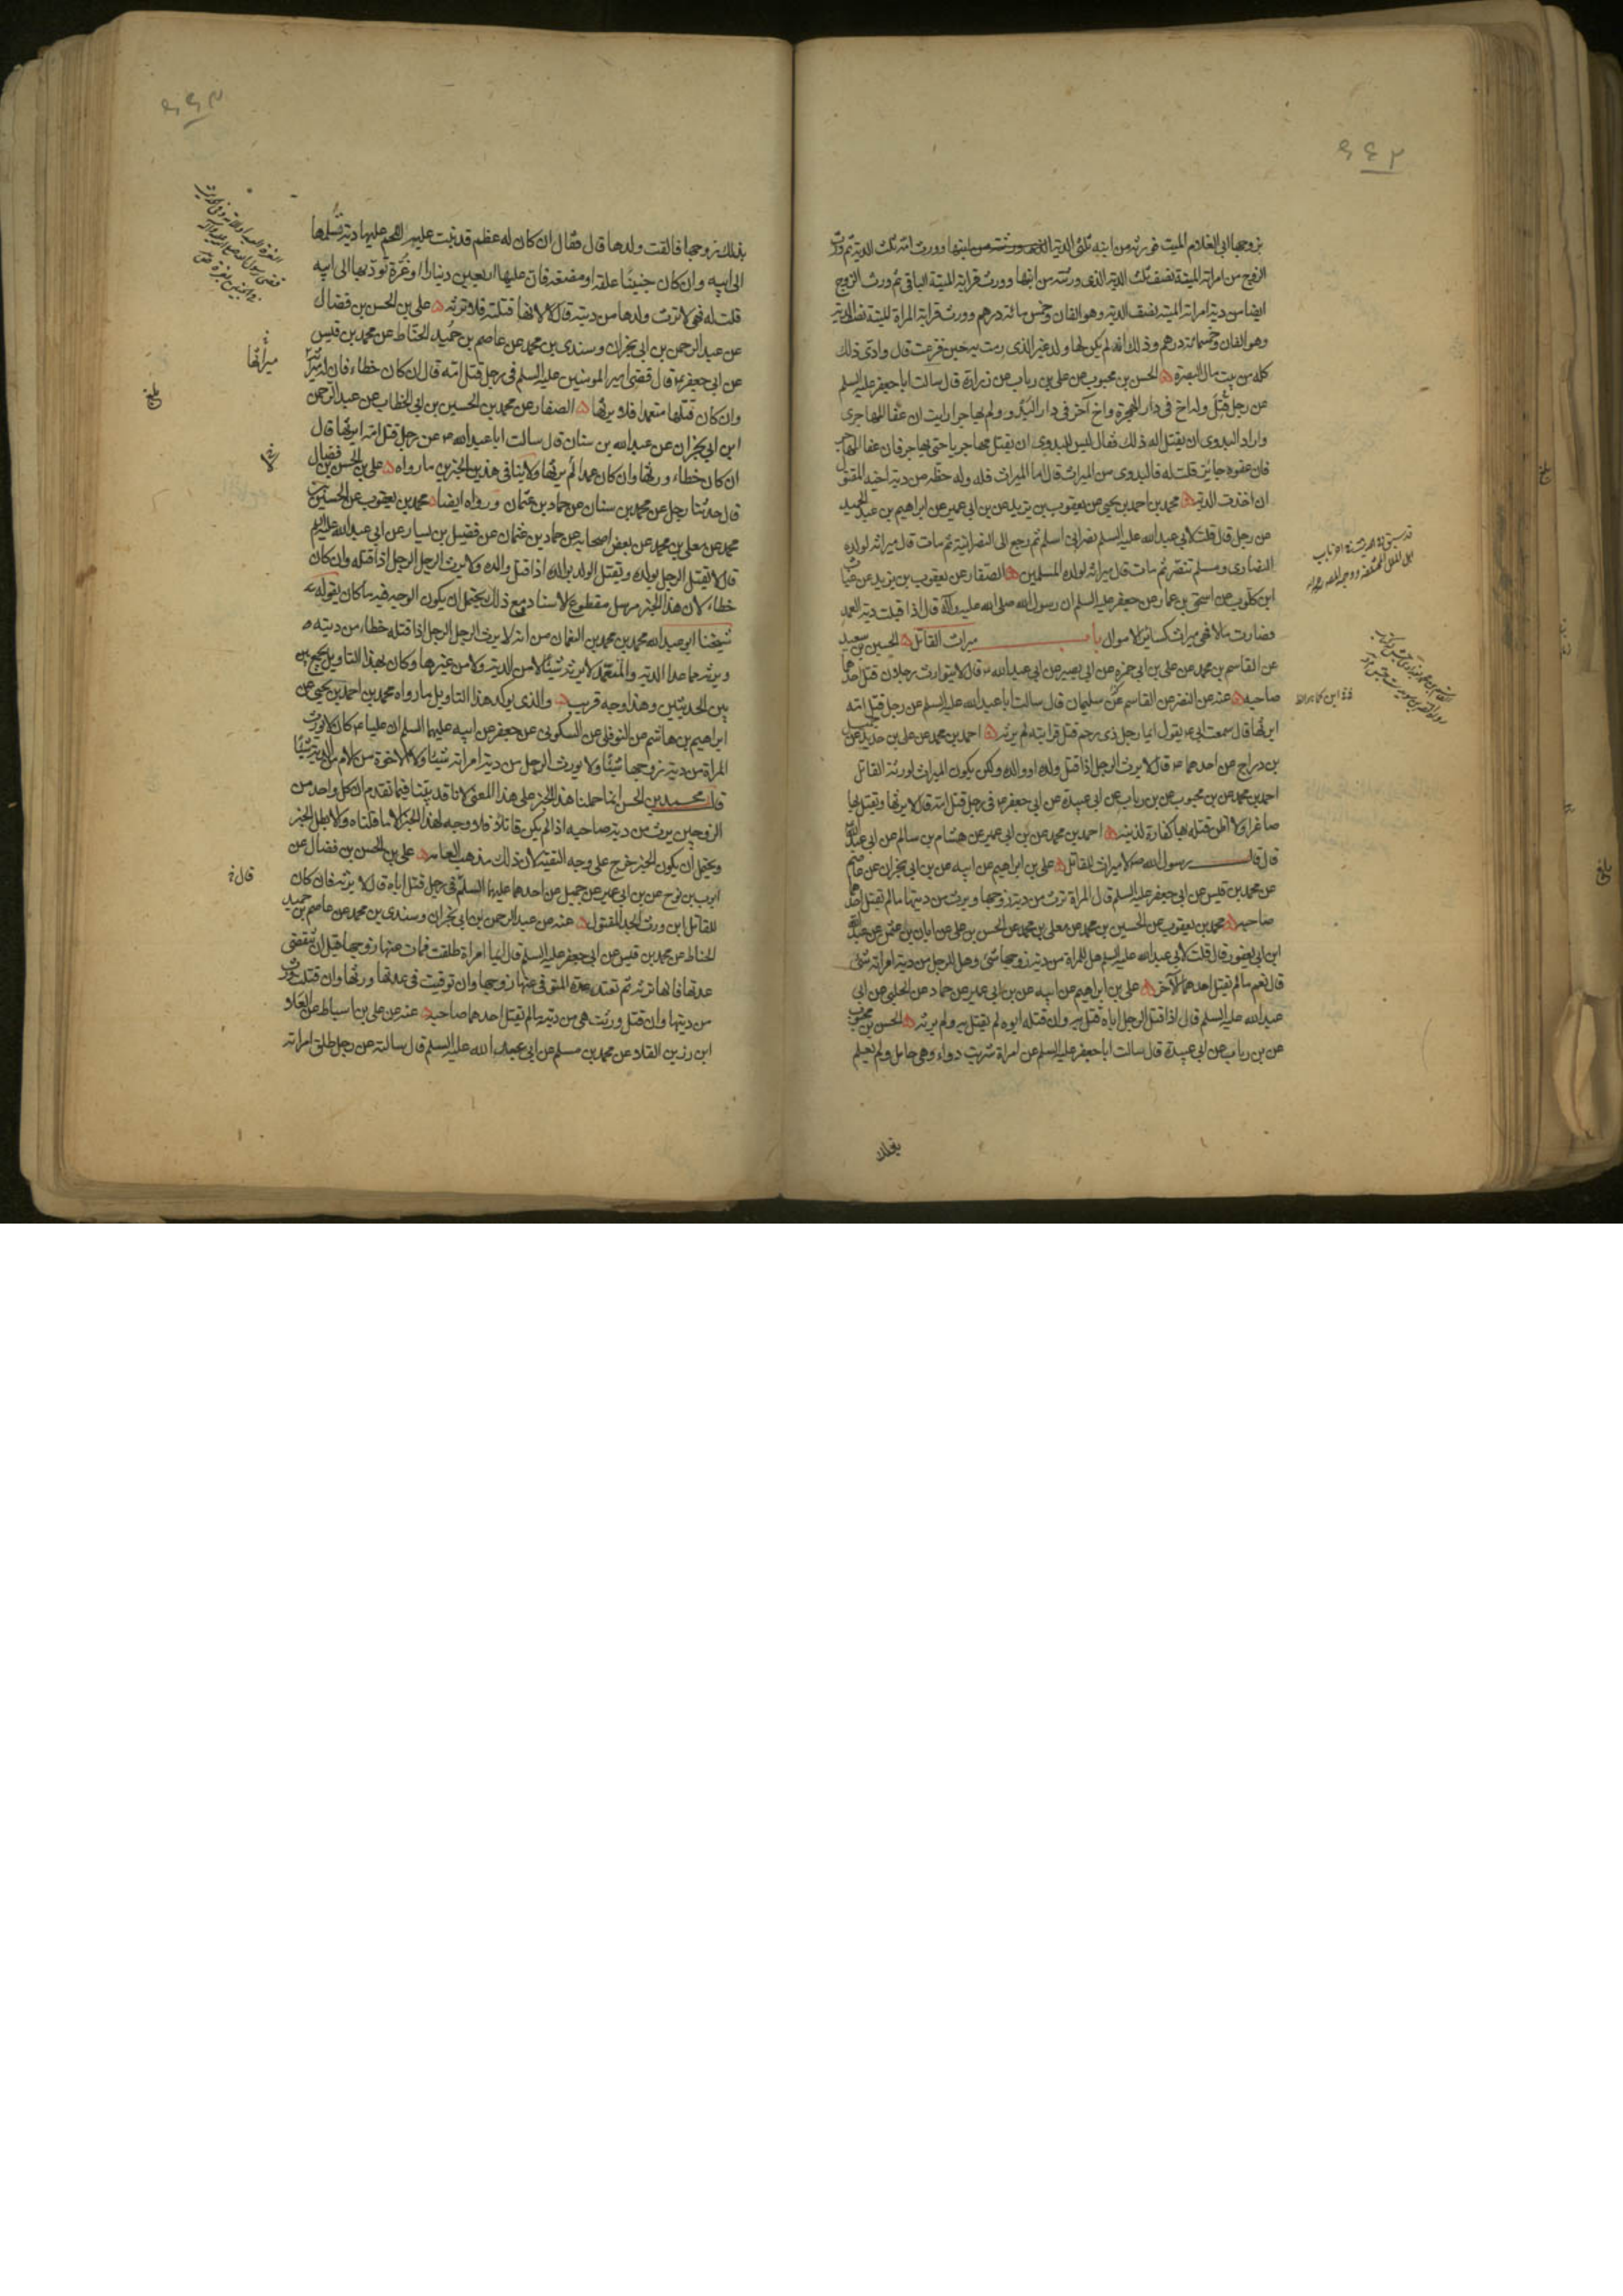 زوجها ابى الغلام الميت فورثه من ابنه ثلثى الدية وورث امه ثلث الدية ثم ورث
الزوج من امراته الميتة نصف ثلث الدية الذى ورثته من ابنها وورث قرابة الميتة الباقى ثم ورث الزوج
ايضا من دية امراته الميتة نصف الدية وهو الفان وخمس مائة درهم وورث قرابة المراة الميتة نصف الدية
وهو الفان وخمسمائة درهم وذلك انه لم يكن لها ولد غير الذى رمت به حين فزعت قال وادى ذلك
كله من بيت مال البصرة الحسن بن محبوب عن على بن رياب عن زرارة قال سالت ابا جعفر عليه السلم
عن رجل قتل وله اخ فى دار الهجرة واخ آخر فى دار البدو ولم يهاجر ارايت ان عفا المهاجرى
واراد البدوى ان يقتل اله ذلك فقال ليس للبدوى ان يقتل مهاجريا حتى يهاجر فان عفا المهاجر
فان عفوه جايز قلت له فالبدوى من الميراث قال اما الميراث فله وله حظه من دية اخيه المقتول
ان اخذت الدية محمد بن احمد بن يحيى عن يعقوب بن يزيد عن بن ابى عمير عن ابراهيم بن عبد الحميد
عن رجل قال قلت لابى عبد الله عليه السلم نصرانى اسلم ثم رجع الى النصرانية ثم مات قال ميراثه لولده
النصارى ومسلم تنصر ثم مات قال ميراثه لولده المسلمين الصفار عن يعقوب بن يزيد عن غياث
ابن كلوب عن اسحق بن عمار عن جعفر عليه السلم ان رسول الله صلى الله عليه وآله قال اذا قبلت دية العمد
فصارت مالا فهى ميراث كسائر الاموال باب ميراث القاتل الحسين بن سعيد
عن القاسم بن محمد عن على بن ابى حمزه عن ابى بصير عن ابى عبد الله ع قال لا يتوارث رجلان قتل احدهما
صاحبه عنه عن النضر عن القاسم عن سليمان قال سالت ابا عبد الله عليه السلم عن رجل قتل امه
ايرثها قال سمعت ابى ع يقول ايما رجل ذى رحم قتل قرابته لم يرثه احمد بن محمد عن على بن حديد عن جميل
بن دراج عن احدهما ع قال لا يرث الرجل اذا قتل ولده او والده ولكن يكون الميراث لورثة القاتل
احمد بن محمد عن بن محبوب عن بن رياب عن ابى عبيدة عن ابى جعفر ع فى رجل قتل امه قال لا يرثها ويقتل بها
صاغرا ولا اظن قتله بها كفارة لذنبه احمد بن محمد عن بن ابى عمير عن هشام بن سالم عن ابى عبد الله
قال قال رسول الله ص لا ميراث للقاتل على بن ابراهيم عن ابيه عن بن ابى نجران عن عاصم
عن محمد بن قيس عن ابى جعفر عليه السلم قال المراة ترث من دية زوجها ويرث من ديتها ما لم يقتل احدهما
صاحبه محمد بن يعقوب عن الحسين بن محمد عن معلى بن محمد عن الحسن بن على عن ابان بن عثمن عن عبد الله
ابن ابى يعفور قال قلت لابى عبد الله عليه السلم هل للمراة من دية زوجها شئ وهل للرجل من دية امراته شئ
قال نعم ما لم يقتل احدهما الآخر على بن ابراهيم عن ابيه عن بن ابى عمير عن حماد عن الحلبى عن ابى
عبد الله عليه السلم قال اذا قتل الرجل اباه قتل به وان قتله ابوه لم يقتل به ولم يرثه الحسن بن محبوب
عن بن رياب عن ابى عبيدة قال سالت ابا جعفر عليه السلم عن امراة شربت دواء وهى حامل ولم يعلم
بذلك
بذلك زوجها فالقت ولدها قال فقال ان كان له عظم قد نبت عليه اللحم عليها دية تسلمها
الى ابيه وان كان جنينا علقة او مضغة فان عليها اربعين دينارا او غرة تؤديها الى ابيه
قلت له فهى لا ترث ولدها من ديته قال لا لانها قتلته فلا ترثه على بن الحسن بن فضال
عن عبد الرحمن بن ابى نجران وسندى بن محمد عن عاصم بن حميد الحناط عن محمد بن قيس
عن ابى جعفر ع قال قضى امير المومنين عليه السلم فى رجل قتل امه قال ان كان خطاء فان له ميراثه
وان كان قتلها متعمدا فلا يرثها الصفار عن محمد بن الحسين بن ابى الخطاب عن عبد الرحمن
ابن ابى نجران عن عبد الله بن سنان قال سالت ابا عبد الله ع عن رجل قتل امه ايرثها قال
ان كان خطاء ورثها وان كان عمدا لم يرثها ولا ينافى هذين الخبرين ما رواه على بن الحسن بن فضال
قال حدثنا رجل عن محمد بن سنان عن حماد بن عثمان ورواه ايضا محمد بن يعقوب عن الحسين بن
محمد عن معلى بن محمد عن بعض اصحابه عن حماد بن عثمان عن فضيل بن يسار عن ابى عبد الله عليه السلم
قال لا يقتل الرجل بولده ويقتل الولد بوالده اذا قتل والده ولا يرث الرجل الرجل اذا قتله وان كان
خطاء لان هذا الخبر مرسل مقطوع الاسناد ومع ذلك يحتمل ان يكون الوجه فيه ما كان يقوله
شيخنا ابو عبد الله محمد بن محمد بن النعمان من انه لا يرث الرجل الرجل اذا قتله خطاء من ديته
ويرثه ما عدا الدية والمتعمد لا يرثه شيئا لا من الدية ولا من غيرها وكان بهذا التاويل يجمع
بين الحديثين وهذا وجه قريب والذى يوكد هذا التاويل ما رواه محمد بن احمد بن يحيى عن
ابراهيم بن هاشم عن النوفلى عن السكونى عن جعفر عن ابيه عليهما السلم ان عليا ع كان لا يورث
المراة من دية زوجها شيئا ولا يورث الرجل من دية امراته شيئا ولا الاخوة من الام من الدية شيئا
قال محمد بن الحسن انما حملنا هذا الخبر على هذا المعنى لانا قد بينا فيما تقدم ان كل واحد من
الزوجين يرث من دية صاحبه اذا لم يكن قاتلا فلا وجه لهذا الخبر الا ما قلناه ولا بطل الخبر
ويحتمل ان يكون الخبر خرج على وجه التقية لان ذلك مذهب العامه على بن الحسن بن فضال عن
ايوب بن نوح عن بن ابى عمير عن جميل عن احدهما عليهما السلم فى رجل قتل اباه قال لا يرثه فان كان
للقاتل ابن ورث الجد المقتول عنه عن عبد الرحمن بن ابى نجران وسندى بن محمد عن عاصم بن حميد
الحناط عن محمد بن قيس عن ابى جعفر عليه السلم قال ايما امراة طلقت فمات عنها زوجها قبل ان تنقضى
عدتها فانها ترثه ثم تعتد عدة المتوفى عنها زوجها وان توفيت فى عدتها ورثها وان قتلت ورث
من ديتها وان قتل ورثت هى من ديته ما لم يقتل احدهما صاحبه عنه عن على بن اسباط عن العلاء
ابن رزين القلاء عن محمد بن مسلم عن ابى عبد الله عليه السلم قال سالته عن رجل طلق امراته
ميراثها
بلغ